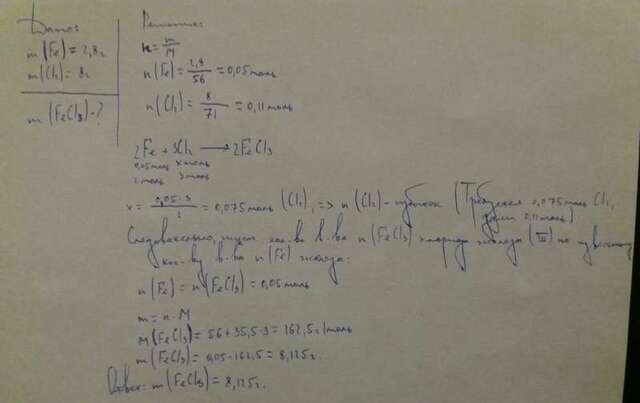 Дано:
m(Fe) = 2,8г
m(Cl₂) = 8г
m(FeCl₃) - ?
Решение:
n = m/M
n(Fe) = 2,8/56 = 0,05 моль
n(Cl₂) = 8/71 = 0,11 моль
2Fe + 3Cl₂ → 2FeCl₃
0,05 моль x моль
2 моль 3 моль
x = 0,05·3/2 = 0,075 моль (Cl₂), => n(Cl₂) - избыток (Требуется 0,075 моль Cl₂,
дали 0,11 моль)
Следовательно, ищем кол-во в-ва n(FeCl₃) хлорида железа (III) по известному
кол-ву в-ва n(Fe) железа:
n(Fe) = n(FeCl₃) = 0,05 моль
m = n·M
M(FeCl₃) = 56 + 35,5·3 = 162,5 г/моль
m(FeCl₃) = 0,05·162,5 = 8,125г.
Ответ: m(FeCl₃) = 8,125г.